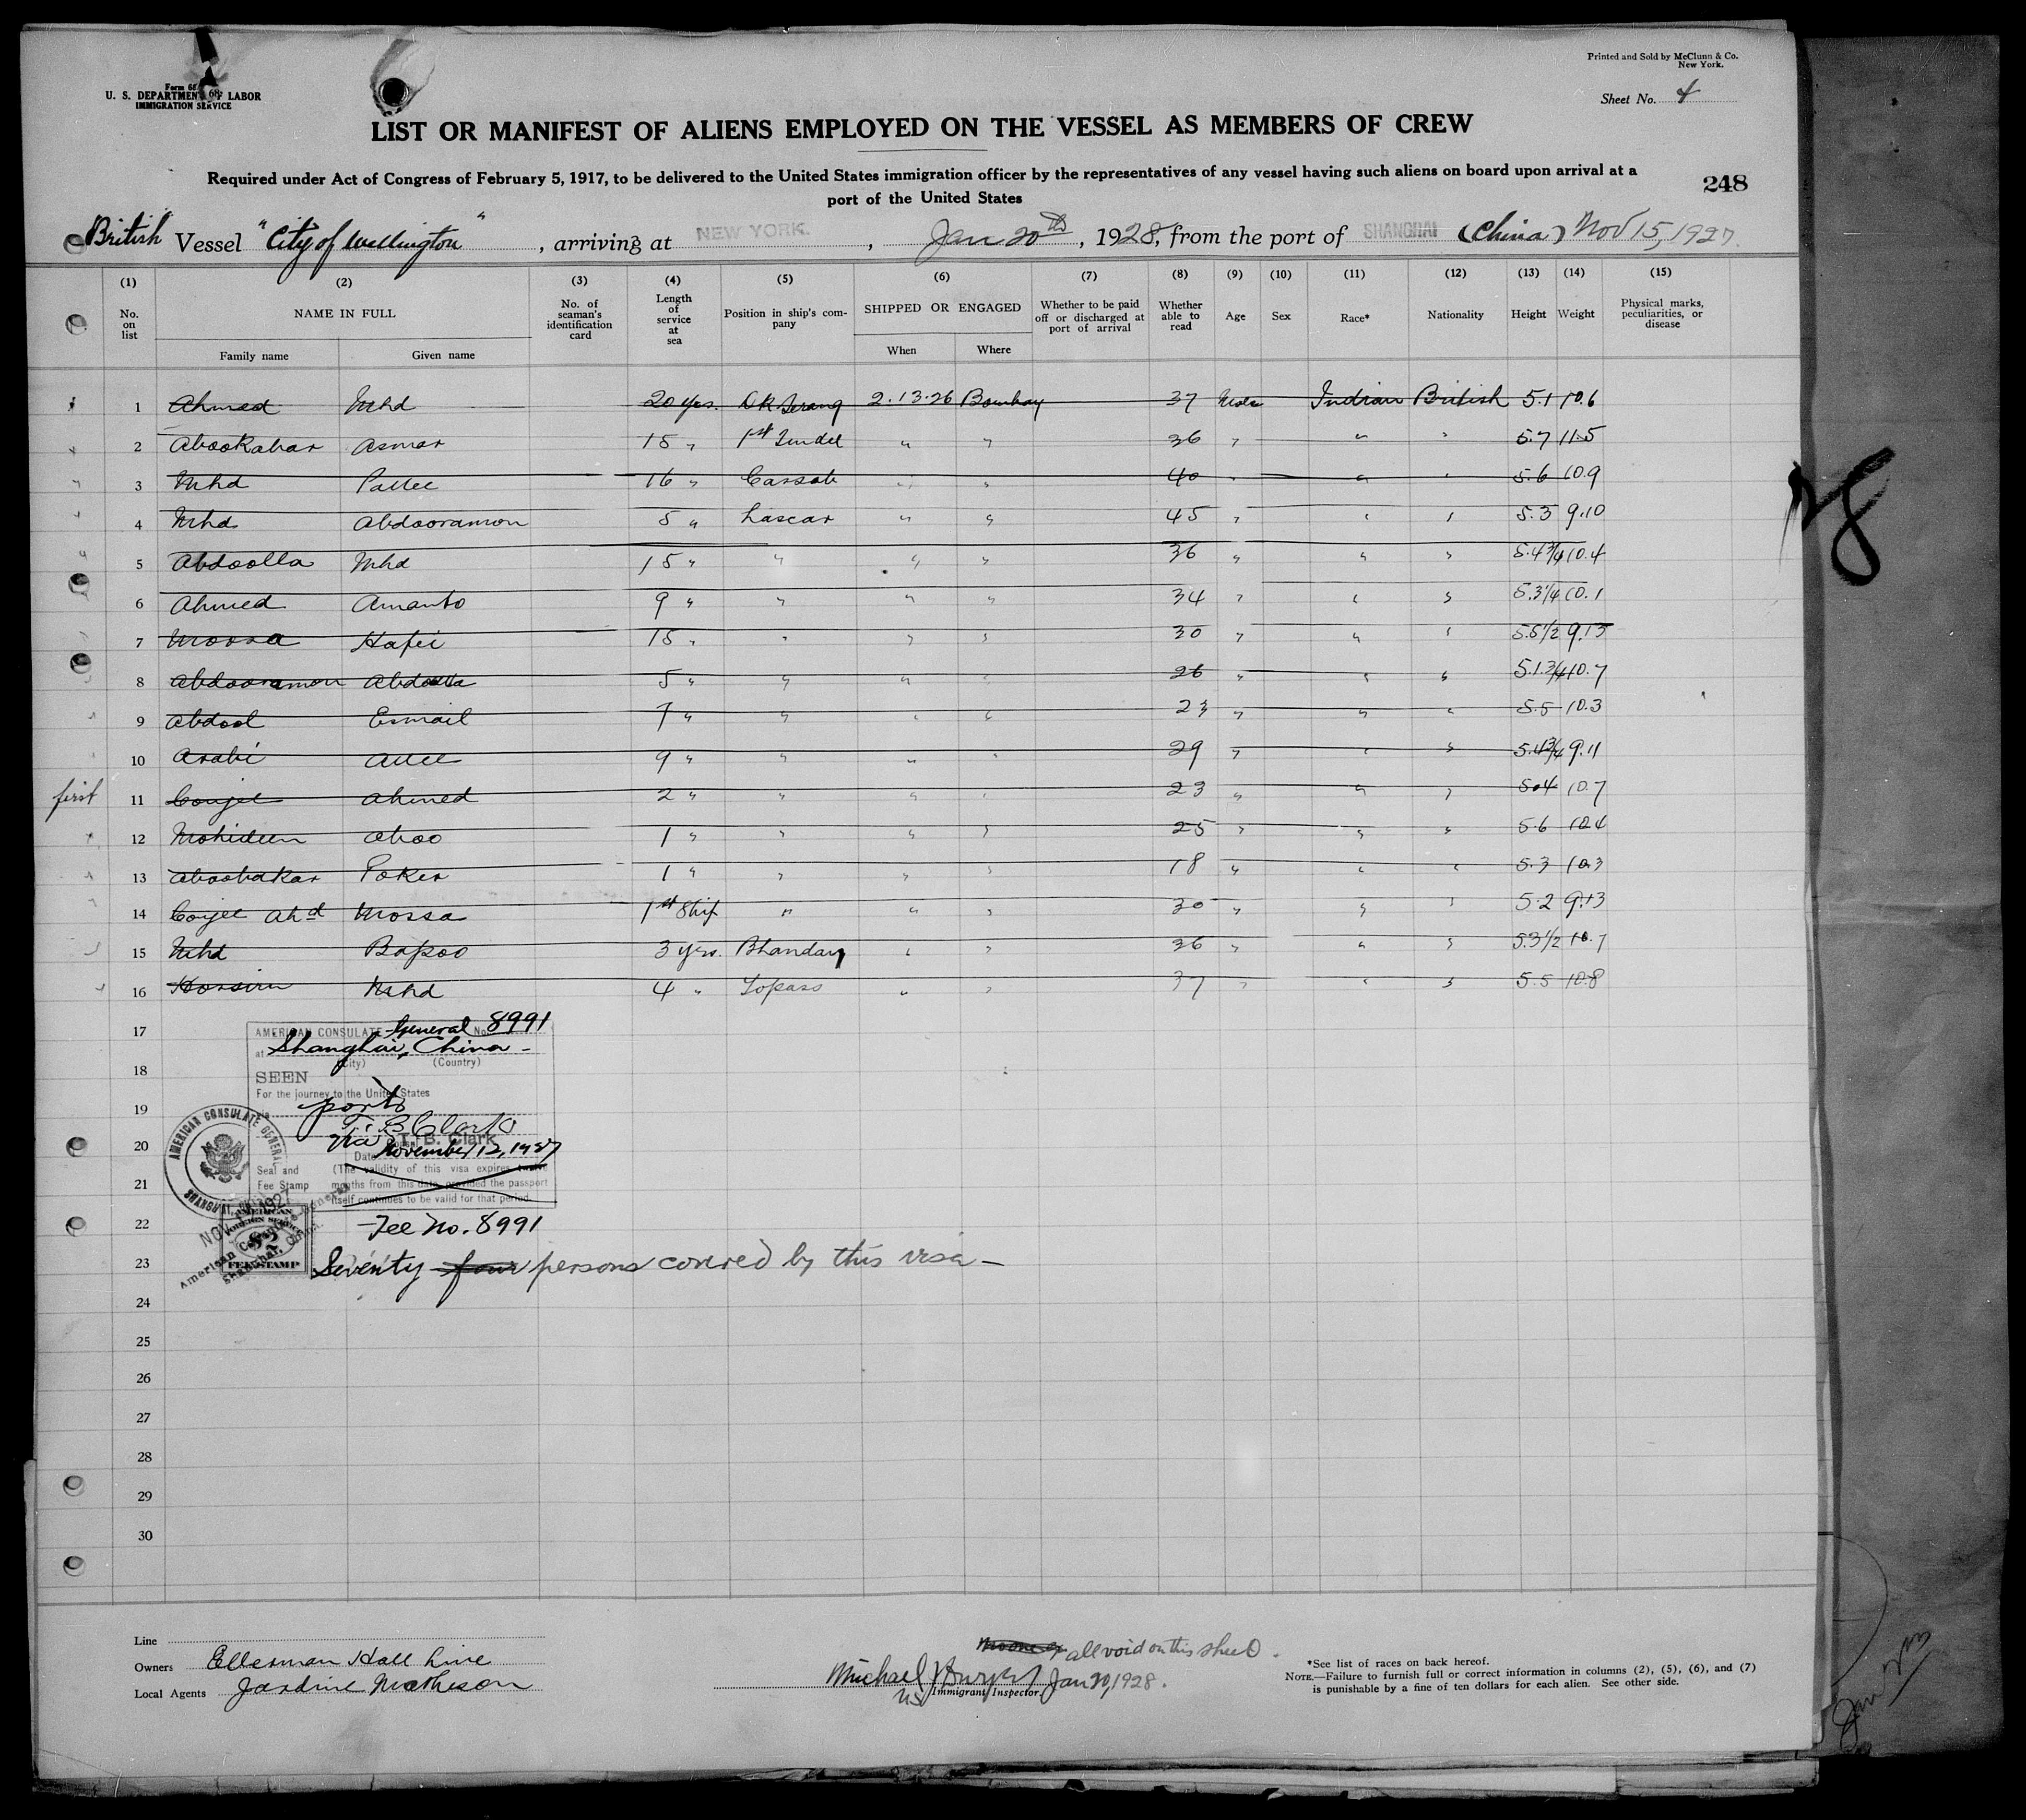 Printed and Sold by McClunn & Co.
New York.
Form 68
U. S. DEPARTMENT OF LABOR
IMMIGRATION SERVICE
Sheet No. 4
LIST OR MANIFEST OF ALIENS EMPLOYED ON THE VESSEL AS MEMBERS OF CREW
Required under Act of Congress of February 5, 1917, to be delivered to the United States immigration officer by the representatives of any vessel having such aliens on board upon arrival at a
port of the United States
248
British Vessel "City of Wellington", arriving at NEW YORK, Jan 20th, 1928, from the port of SHANGHAI (China) Nov 15, 1927.
(1) (2) (3) (4) (5) (6) (7) (8) (9) (10) (11) (12) (13) (14) (15)
No. on list NAME IN FULL No. of seaman's identification card Length of service at sea Position in ship's company SHIPPED OR ENGAGED Whether to be paid off or discharged at port of arrival Whether able to read Age Sex Race* Nationality Height Weight Physical marks, peculiarities, or disease
Family name Given name When Where
1 Ahmed Mhd 20 yrs. Dk Serang 2.13.26 Bombay 37 Male Indian British 5.1 10.6
2 Abookabar Asmar 15 " 1st Tindel " " 36 " " " 5.7 11.5
3 Mhd Pallee 16 " Cassab " " 40 " " " 5.6 10.9
4 Mhd Abdooramon 5 " Lascar " " 45 " " " 5.3 9.10
5 Abdoolla Mhd 15 " " " " 36 " " " 5.4 3/4 10.4
6 Ahmed Amanto 9 " " " " 34 " " " 5.3 1/4 10.1
7 Moosa Hafei 15 " " " " 30 " " " 5.5 1/2 9.13
8 Abdooramon Abdoola 5 " " " " 26 " " " 5.1 3/4 10.7
9 Abdool Esmail 7 " " " " 23 " " " 5.5 10.3
10 Arabi Allee 9 " " " " 29 " " " 5.4 3/4 9.11
first 11 Coujee Ahmed 2 " " " " 23 " " " 5.4 10.7
12 Mohideen Aboo 1 " " " " 25 " " " 5.6 10.4
13 Aboobakar Poker 1 " " " " 18 " " " 5.3 10.3
14 Coujee Ahd Mossa 1st Ship " " " 30 " " " 5.2 9.13
15 Mhd Bapoo 3 yrs. Bhandary " " 36 " " " 5.3 1/2 10.7
16 Hossein Mhd 4 " Topass " " 37 " " " 5.5 10.8
17
AMERICAN CONSULATE General No. 8991
at Shanghai, China
(City) (Country)
18
SEEN
For the journey to the United States
19
ports
20
T. B. Clark
T. B. Clark
Date November 12, 1927
AMERICAN CONSULATE GENERAL SHANGHAI
Seal and Fee Stamp
(The validity of this visa expires twelve
21
months from this date provided the passport
itself continues to be valid for that period.
22
Fee No. 8991
AMERICAN FOREIGN SERVICE $2 FEE STAMP
23
Seventy four persons covered by this visa
24
25
26
27
28
29
30
Line
Owners Ellerman Hall Line
Local Agents Jardine Matheson
all void on this sheet.
Jan 20, 1928.
US Immigrant Inspector
*See list of races on back hereof.
NOTE.—Failure to furnish full or correct information in columns (2), (5), (6), and (7)
is punishable by a fine of ten dollars for each alien. See other side.